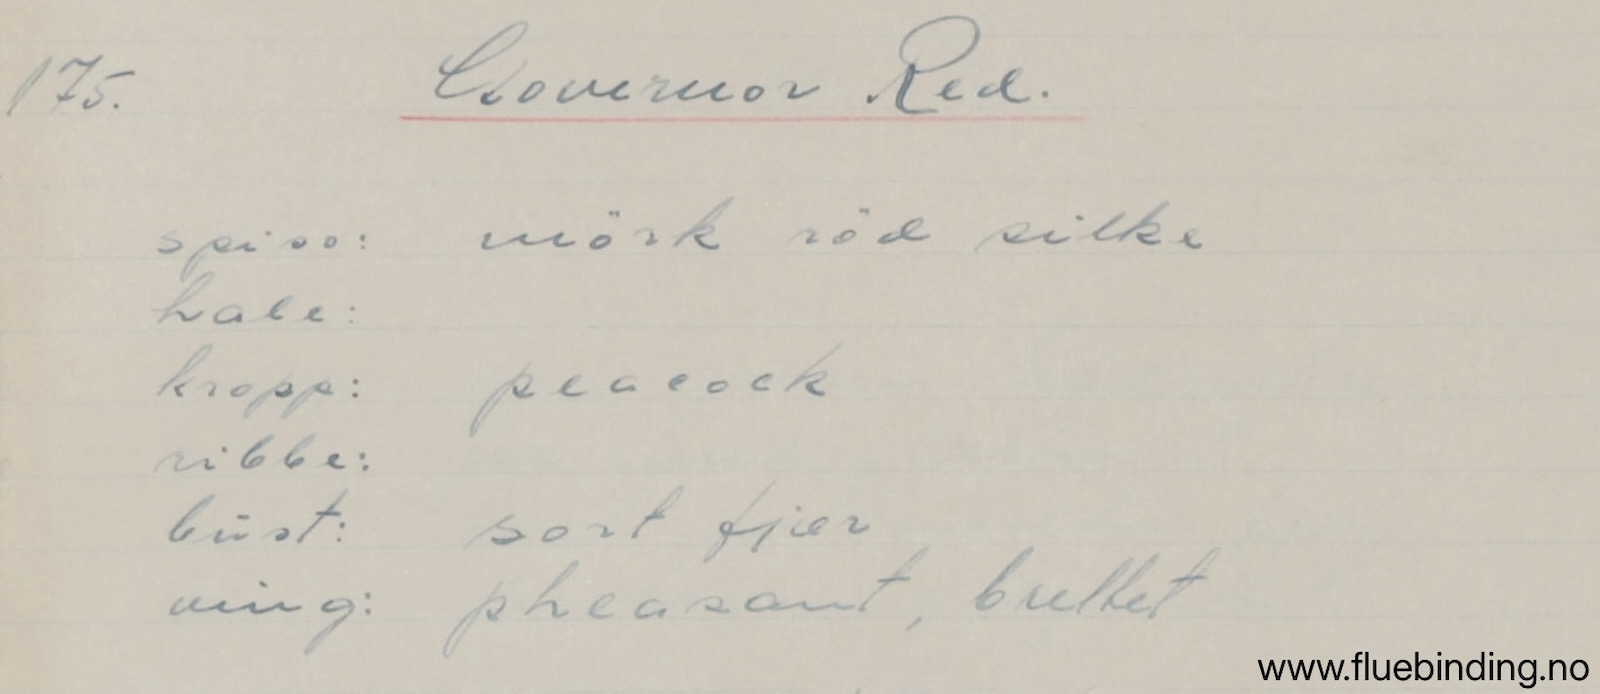 175. Governor Red.
spiss: mörk röd silke
hale:
kropp: peacock
ribbe:
büst: sort fjær
ving: pheasant, brettet
www.fluebinding.no